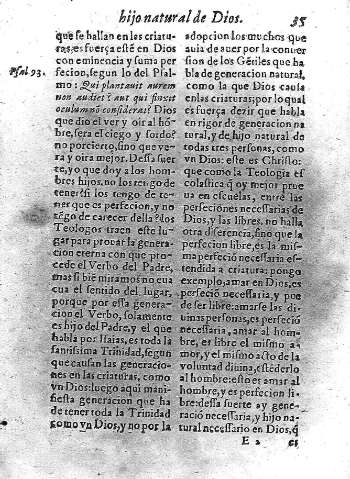 hijo natural de Dios. 35
que se hallan en las criatu-
ras, es fuerça esté en Dios
con eminencia y suma per
fecion, segun lo del Psal-
Psal. 93.
mo: Qui plantauit aurem
non audiet? aut qui finxit
oculum nõ considerat? Dios
que dio el ver y oir al hõ-
bre, sera el ciego y sordo?
no por cierto, sino que ve-
ra y oira mejor. Dessa suer
te, yo que doy a los hom-
bres hijos, no los tengo de
tener? si los tengo de tener-
que es perfecion, y no
tẽgo de carecer della? los
Teologos traen este lu-
gar para prouar la genera-
cion eterna con que pro-
cede el Verbo del Padre,
mas si biẽ miramos no ca
ua el sentido del lugar,
porque por essa genera-
cion el Verbo, solamente
es hijo del Padre, y el que
habla por Isaias, es toda la
santissima Trinidad, segun
que causan las generacio-
nes en las criaturas, como
vn Dios: luego aqui mani-
fiesta generacion que ha
de tener toda la Trinidad
como vn Dios, y no por la
adopcion los muchos que
auia de auer por la conuer
sion de los Gẽtiles que ha
bla de generacion natural,
como la que Dios causa
en las criaturas, por lo qual
es fuerça dezir que habla
en rigor de generacion na
tural, y de hijo natural de
todas tres personas, como
vn Dios: este es Christo:
que como la Teologia es
colastica q̃ oy mejor prue
ua en escuelas, entre las
perfeciones necessarias de
Dios, y las libres, no halla
otra diferencia, sino que la
perfecion libre, es la mis-
ma perfeciõ necessaria es-
tendida a criatura: pongo
exemplo, amar en Dios, es
perfeciõ necessaria, y pue
de ser libre: amarse las di-
uinas personas, es perfeciõ
necessaria, amar al hom-
bre, es libre el mismo a-
mor, y el mismo acto de la
voluntad diuina, estẽderlo
al hombre: esto es amar al
hombre, y es perfecion li-
bre: dessa suerte ay gene-
raciõ necessaria, y hijo na
tural necessario en Dios, q̃
E 2